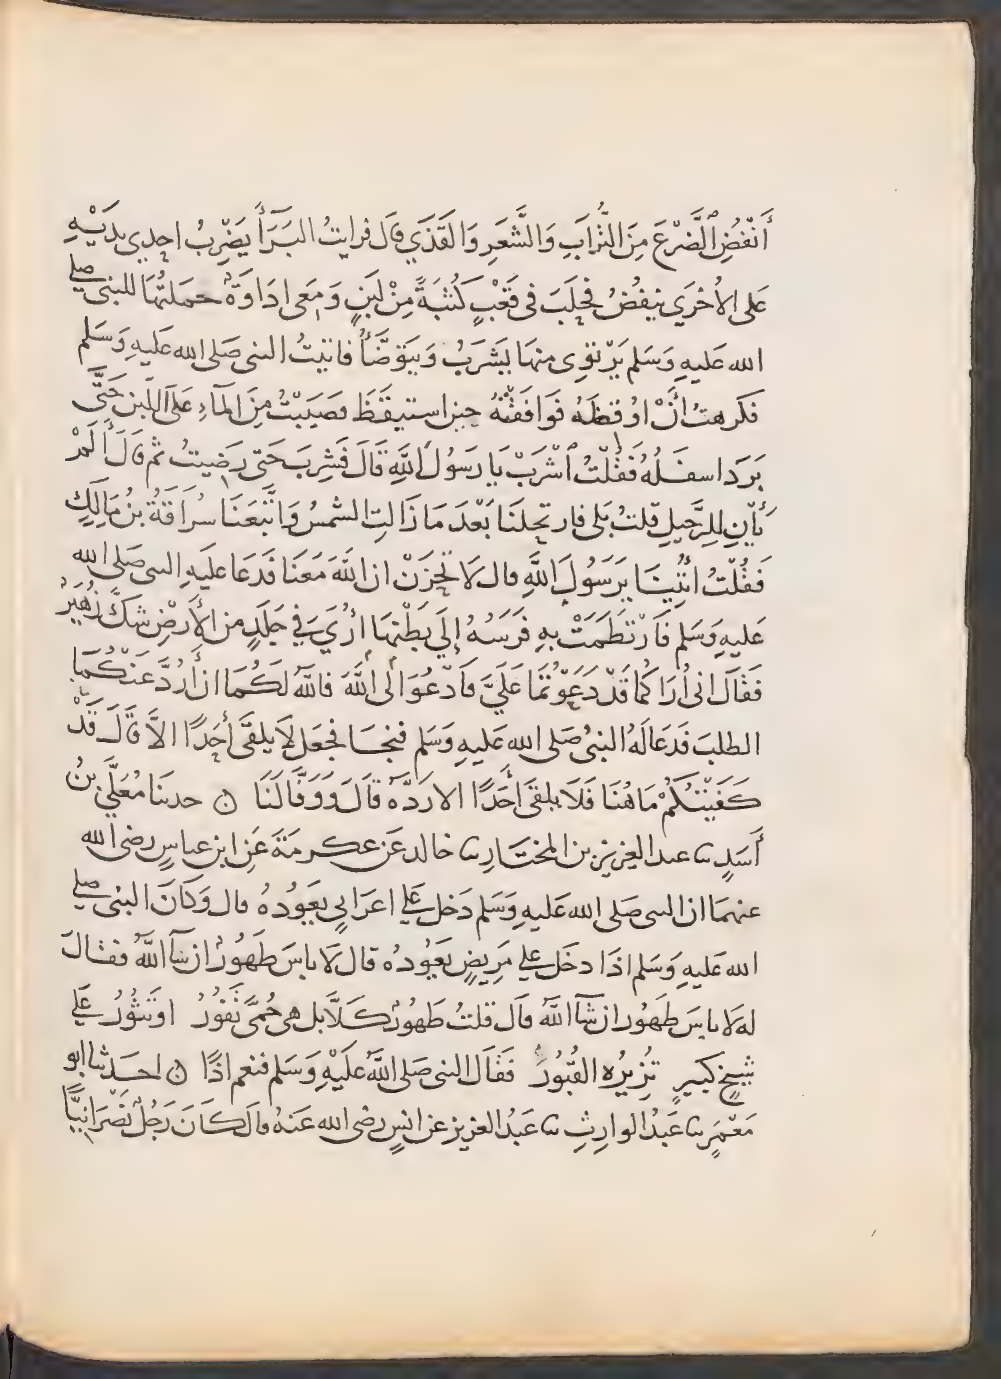 أَنْفُضِ الضَّرْعَ مِنَ التُّرَابِ وَالشَّعَرِ وَالْقَذَي قَالَ فرايتُ البَرَآأَ يَضْرِبُ احدي يديْهِ
عَلى الأُخْرَي ينفُضُ فحلَبَ في قَعْبٍ كُثْبَةً مِنْ لبَنٍ وَمَعى ادَاوَةٌ حملتُهَا للنبي صلى
الله عَليهِ وَسَلم يَرْتوِى منهَا يشرَبُ وَيَتوَضَّأُ فاتيتُ النبي صَلى الله عَليهِ وَسَلم
فكرهتُ أَنْ اوقظَهُ فَوَافَقْتُهُ حِينَ استيقَظَ فصَببْتُ مِنَ الماءِ عَلى اللبَنِ حَتَّى
بَرَدَ اسفَلُهُ فَقُلْتُ اشْرَبْ يَا رَسُولَ اللهِ قَالَ فَشرِبَ حَتى رَضِيتُ ثم قَالَ أَلَمْ
يَأْنِ لِلرَّحِيلِ قلتُ بَلى فارتحلنَا بَعْدَ مَا زَالتِ الشمسُ وَاتَّبَعَنَا سُرَاقَةُ بنُ مَالِكٍ
فَقُلْتُ أُتِينَا يَرَسُولَ اللهِ قال لَا تحْزَنْ ان اللهَ مَعَنَا فَدَعَا عَليهِ النبى صَلى الله
عَليهِ وَسَلم فَارْتَطَمَتْ بِهِ فَرَسُهُ إِلَي بَطْنِهَا أُرَي في جَلَدٍ من الأَرْضِ شَكَّ زُهَيرٌ
فَقَالَ انى أُرَاكُمَا قَدْ دَعَوْتُمَا عَلَيَّ فَادْعُوَا لى اللهَ فاللهُ لَكُمَا ان أَرُدَّ عَنْكُمَا
الطلبَ فَدَعَا لَهُ النبيُ صَلى الله عَليهِ وَسَلم فنجَا فجعَل لَا يلقَى أَحَدًا الاَّ قَالَ قَدْ
كَفَيْتُكُمْ مَا هُنَا فَلَا يلقَى أَحَدًا الا رَدَّهُ قَالَ وَوَفَّا لَنَا ن حدثنا مُعَلَّي بنُ
أَسَدٍ ثنا عبد العزيز بن المختَارِ ثنا خالد عَن عكرمَةَ عَنِ ابن عباسٍ رضى الله
عنهمَا ان النبى صَلى الله عَليهِ وَسَلم دَخل عَلى اعرَابي يعَوُدُهُ قال وَكَانَ النبي صلى
الله عَليهِ وَسَلم اذَا دخَل على مَرِيضٍ يَعُودُه قال لَا باسَ طَهُورٌ ان شآ اللهُ فقالَ
له لَا باسَ طَهُور ان شآ اللهُ قَال قلتُ طَهُورٌ كَلاَّ بل هى حُمَّى تَفُورُ اوتَثُوُرُ عَلى
شيخٍ كبيرٍ تُزِيرُه القُبُورَ فَقَالَ النبى صَلى اللهُ عَلَيْهِ وَسَلم فنعم اذًا ن احدثنا ابو
مَعْمَرٍ ثنا عَبْدُ الوارِثِ ثنا عَبدُ العزيز عن انسٍ رضى الله عَنهُ قال كَانَ رَجُلٌ نَصْرَانِيًّا